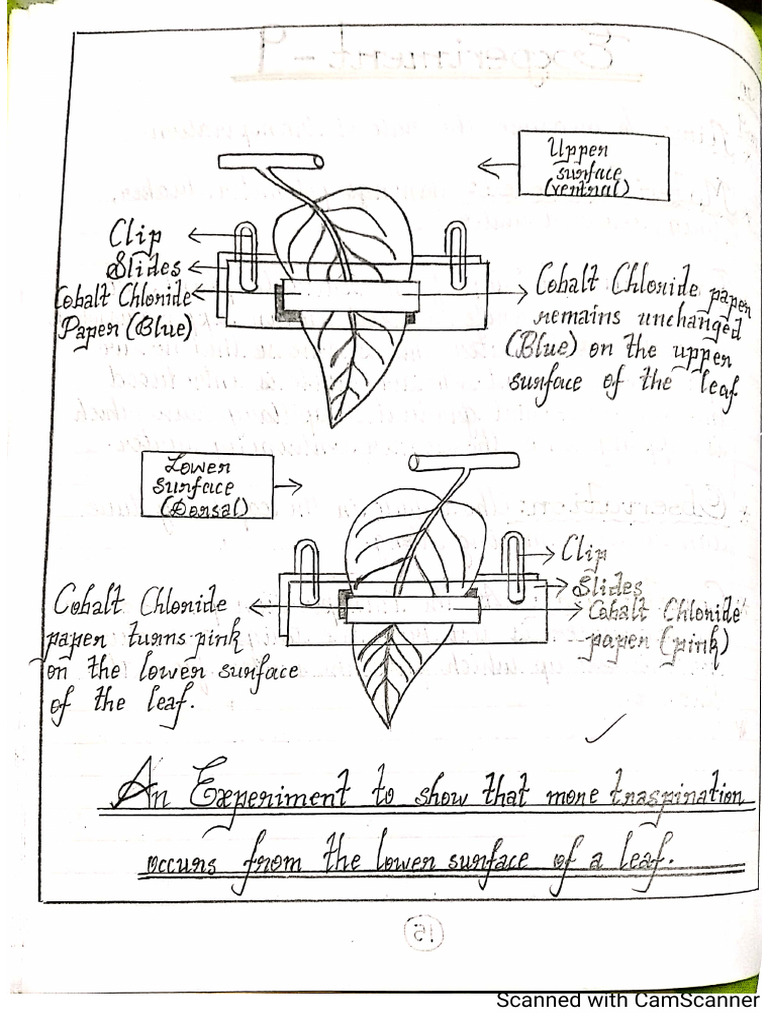 Upper
surface
(ventral)
Clip
Slides
Cobalt Chloride
Paper (Blue)
Cobalt Chloride paper
remains unchanged
(Blue) on the upper
surface of the leaf.
Lower
Surface
(Dorsal)
Clip
Slides
Cobalt Chloride
paper (pink)
Cobalt Chloride
paper turns pink
on the lower surface
of the leaf.
An Experiment to show that more traspiration
occurs from the lower surface of a leaf.
15
Scanned with CamScanner